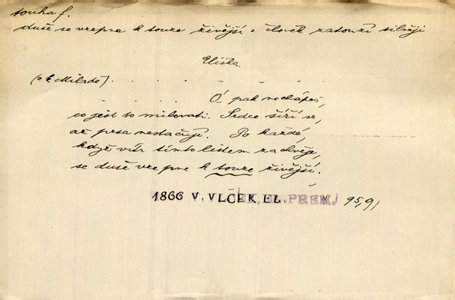 touha f.
duše se vzepne k touze živější = člověk zatouží silněji
Eliška
(o k Miladě) . . . . . . . . . . . . . . . . . .
Ó pak nechápeš,
co jest to milovati. Srdce šíří se,
až prsa nestačují. Po každé,
když vír tímto listem zachvěje,
se duše vzepne k touze živější.
1866 V. VLČEK, EL. PŘEM. 95,91